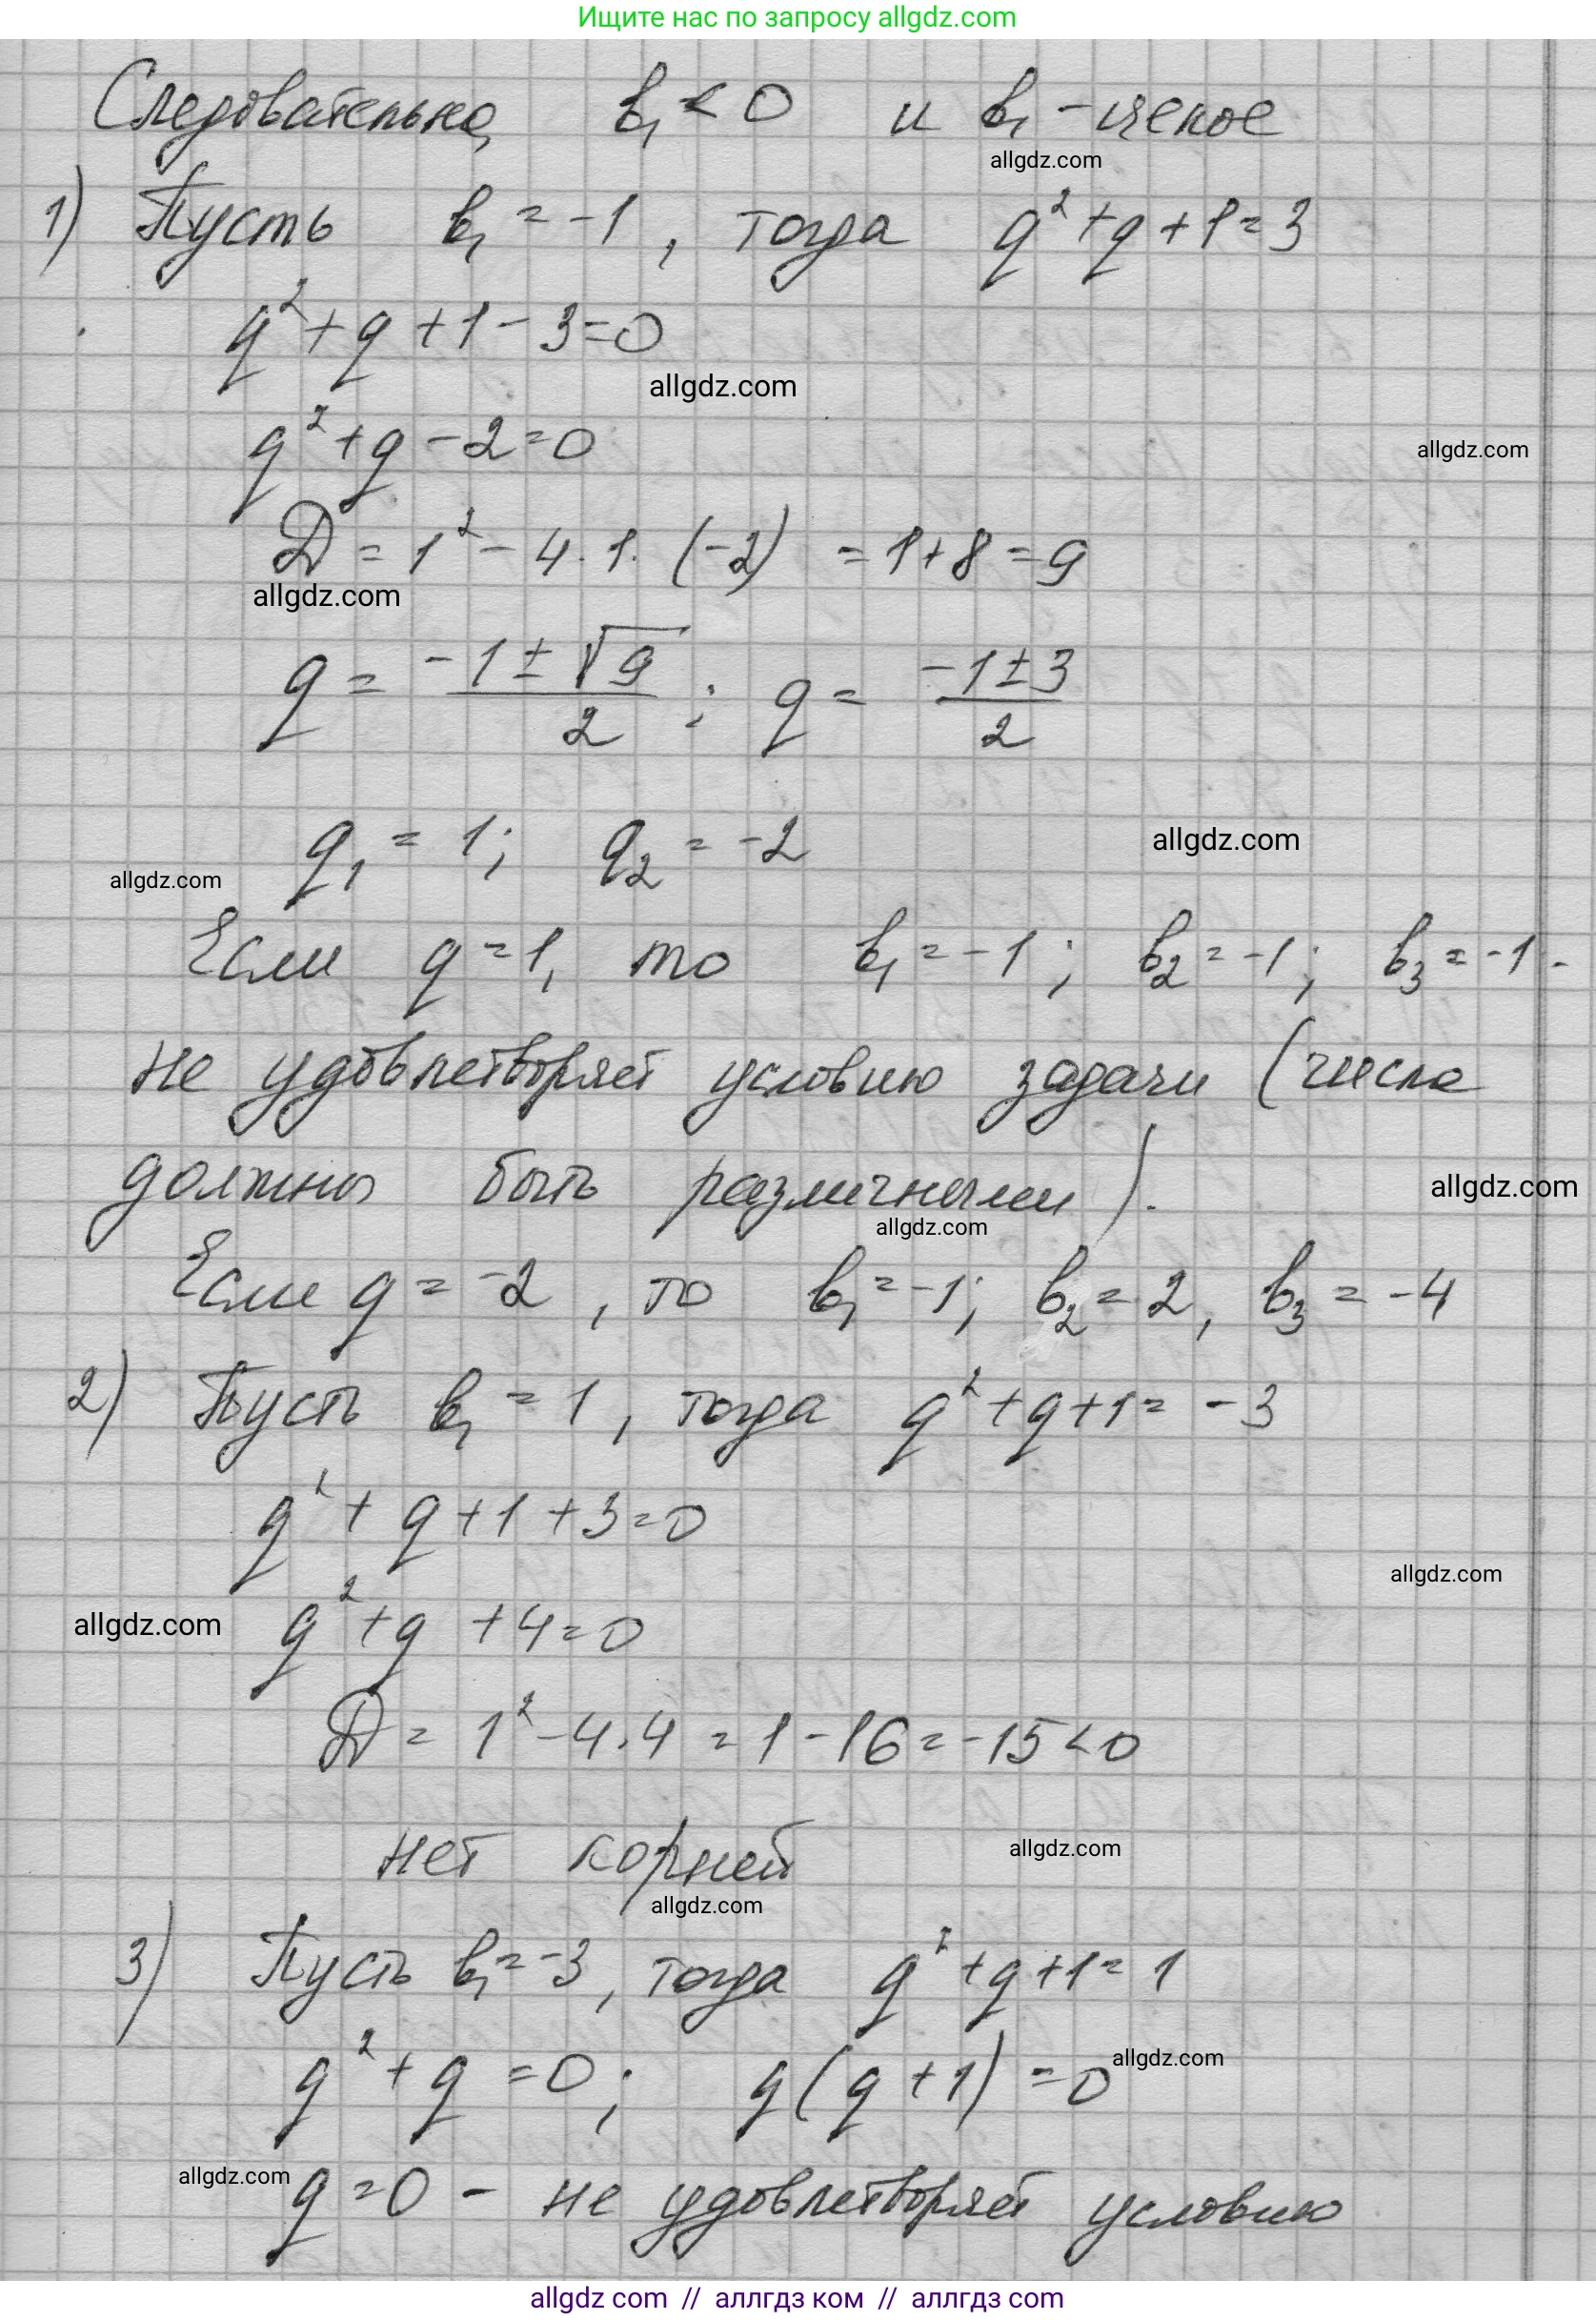 Ищите нас по запросу allgdz.com
Следовательно, b₁ < 0 и b₁ - целое
allgdz.com
1) Пусть b₁ = -1, тогда q² + q + 1 = 3
q² + q + 1 - 3 = 0
allgdz.com
q² + q - 2 = 0
allgdz.com
D = 1² - 4 · 1 · (-2) = 1 + 8 = 9
allgdz.com
q = (-1 ± √9)/2 ; q = (-1 ± 3)/2
q₁ = 1; q₂ = -2
allgdz.com
allgdz.com
Если q = 1, то b₁ = -1; b₂ = -1; b₃ = -1 -
не удовлетворяет условию задачи (числа
должны быть различными).
allgdz.com
allgdz.com
Если q = -2, то b₁ = -1; b₂ = 2, b₃ = -4
2) Пусть b₁ = 1, тогда q² + q + 1 = -3
q² + q + 1 + 3 = 0
allgdz.com
allgdz.com
q² + q + 4 = 0
D = 1² - 4 · 4 = 1 - 16 = -15 < 0
нет корней
allgdz.com
allgdz.com
3) Пусть b₁ = -3, тогда q² + q + 1 = 1
q² + q = 0; q(q + 1) = 0
allgdz.com
allgdz.com
q = 0 - не удовлетворяет условию
allgdz com // аллгдз ком // allgdz com